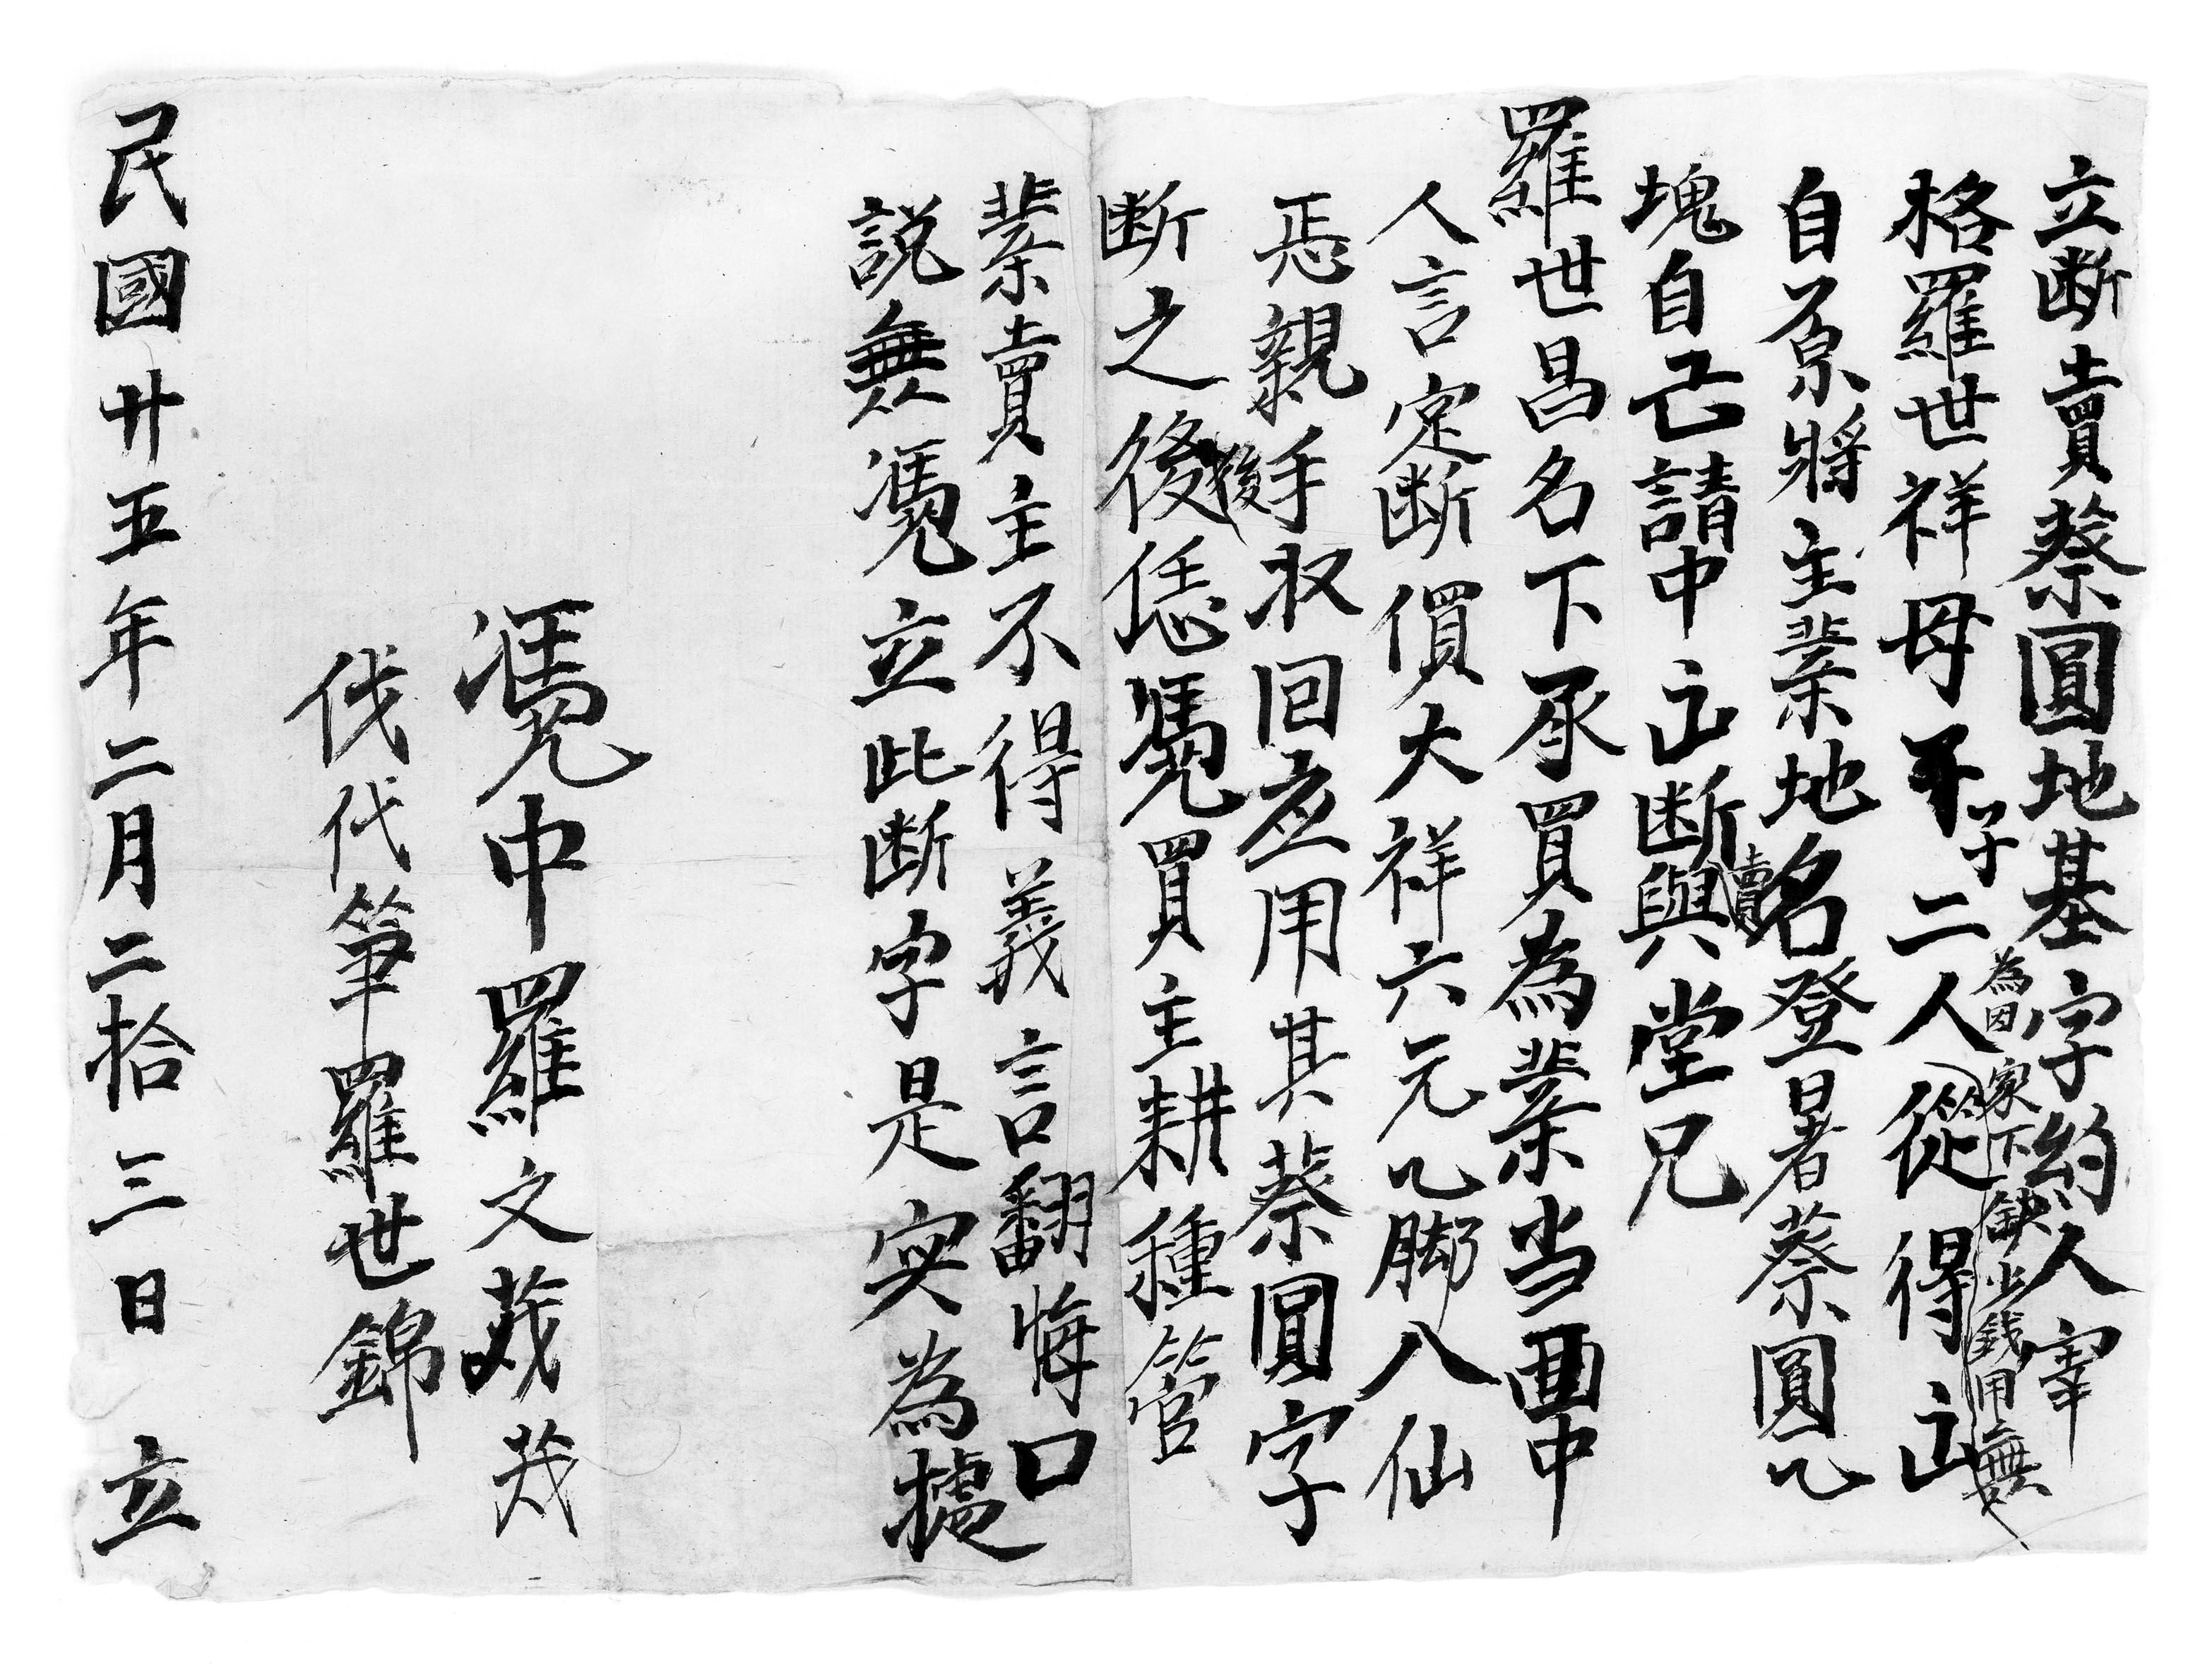 立断賣蔡圓地基字約人宰
格羅世祥母子二人從得出
為因家下缺少錢用無
自原將主業地名登日著蔡圓乙
塊自己請中出断賣與堂兄
羅世昌名下承買為業当面中
人言定断價大祥六元乙脚八仙
恁親手収回应用其蔡圓字
断之後恁馮買主耕種管
後
業賣主不得義言翻悔口
説無馮立此断字是实為據
馮中羅文茂
伐代筆羅世錦
民國廿五年二月二拾三日立